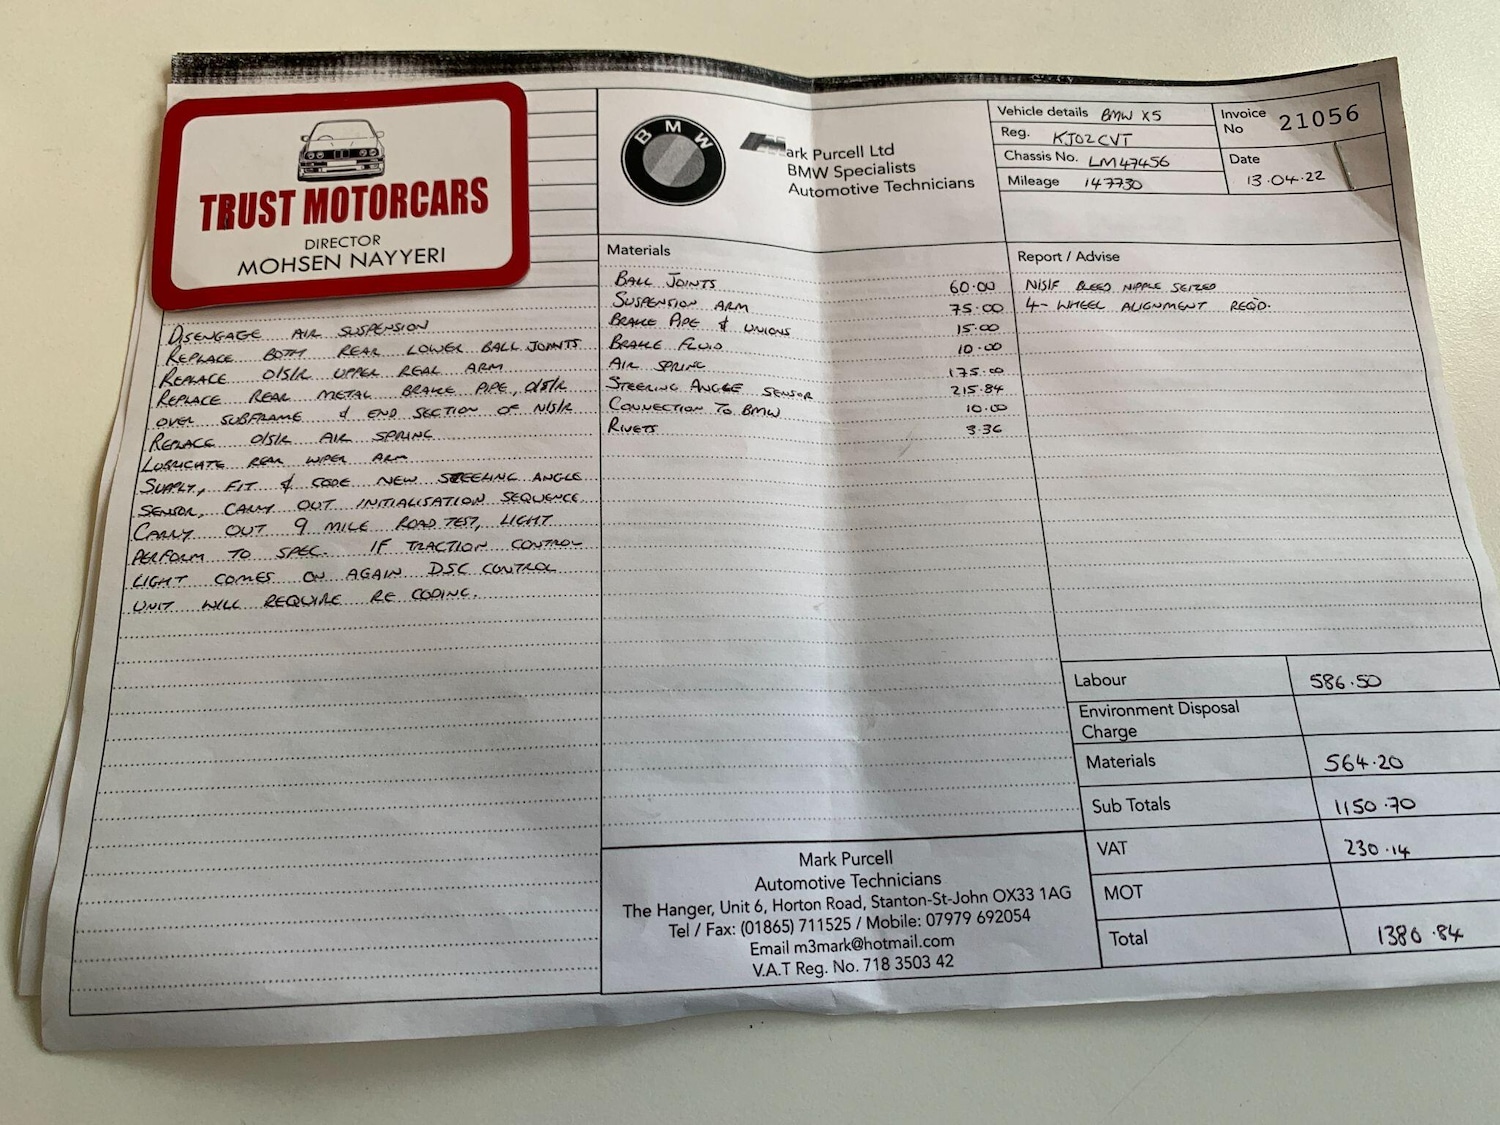 TRUST MOTORCARS
DIRECTOR
MOHSEN NAYYERI
BMW
ark Purcell Ltd
BMW Specialists
Automotive Technicians
Vehicle details BMW X5
Reg. KJ02CVT
Chassis No. LM47456
Mileage 147730
Invoice
No 21056
Date
13.04.22
DISENGAGE AIR SUSPENSION
REPLACE BOTH REAR LOWER BALL JOINTS
REPLACE O/S/R UPPER REAR ARM
REPLACE REAR METAL BRAKE PIPE, O/S/R
OVER SUBFRAME & END SECTION OF N/S/R
REPLACE O/S/R AIR SPRING
LUBRICATE REAR WIPER ARM
SUPPLY, FIT & CODE NEW STEERING ANGLE
SENSOR, CARRY OUT INITIALISATION SEQUENCE
CARRY OUT 9 MILE ROAD TEST, LIGHT
PERFORM TO SPEC. IF TRACTION CONTROL
LIGHT COMES ON AGAIN DSC CONTROL
UNIT WILL REQUIRE RE CODING.
Materials
BALL JOINTS 60.00
SUSPENSION ARM 75.00
BRAKE PIPE & UNIONS 15.00
BRAKE FLUID 10.00
AIR SPRING 175.00
STEERING ANGLE SENSOR 215.84
CONNECTION TO BMW 10.00
RIVETS 3.36
Report / Advise
N/S/F BLEED NIPPLE SEIZED
4-WHEEL ALIGNMENT REQ'D.
Labour 586.50
Environment Disposal
Charge
Materials 564.20
Sub Totals 1150.70
VAT 230.14
MOT
Total 1380.84
Mark Purcell
Automotive Technicians
The Hanger, Unit 6, Horton Road, Stanton-St-John OX33 1AG
Tel / Fax: (01865) 711525 / Mobile: 07979 692054
Email m3mark@hotmail.com
V.A.T Reg. No. 718 3503 42